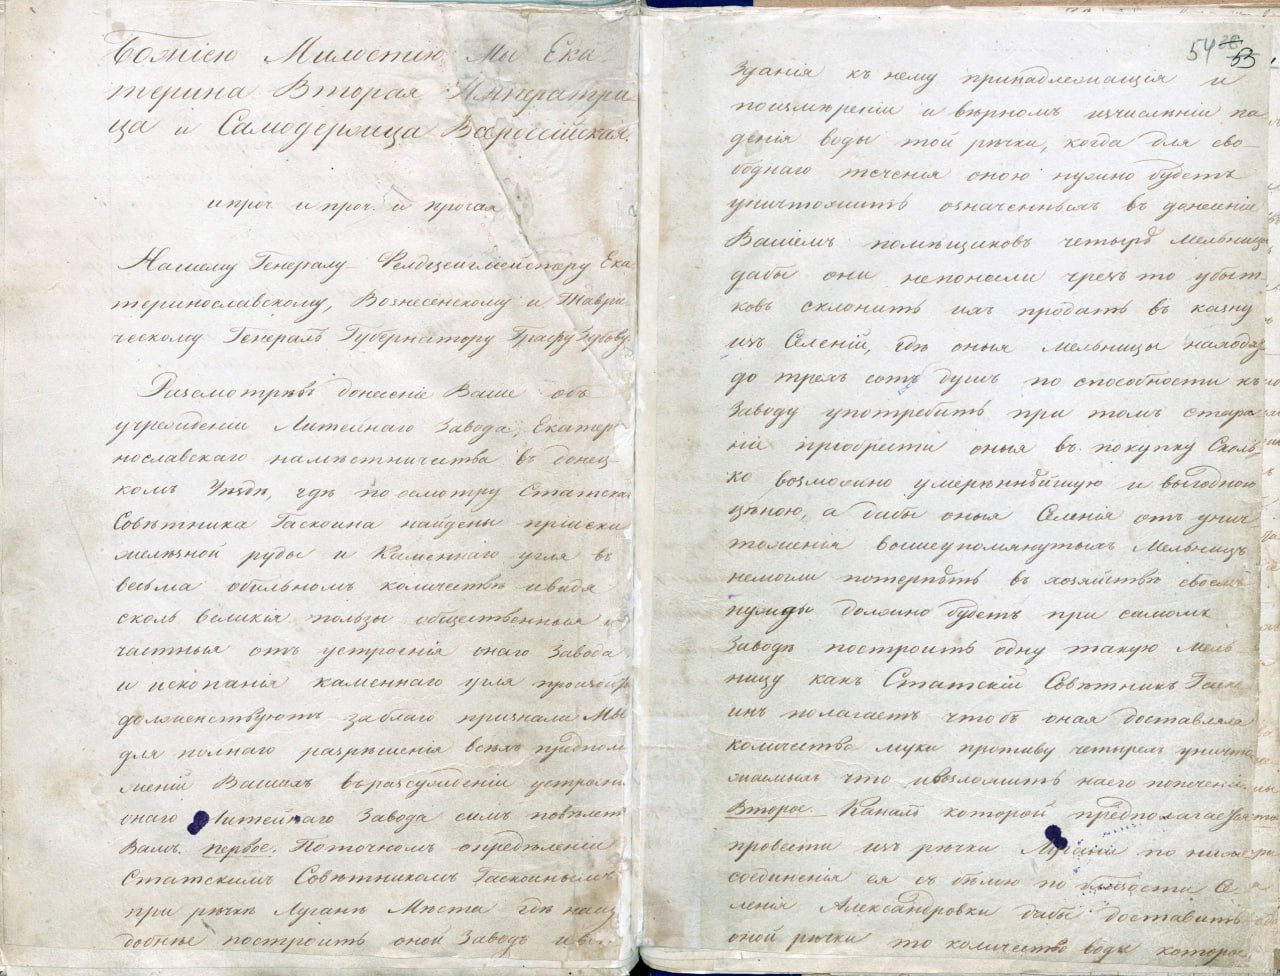 Божіею Милостію Мы Ека-
терина Вторая Императри
ца и Самодержица Всероссійская.
и проч. и проч. и прочая
Нашему Генералу-Фельдцейгмейстеру Ека
теринославскому, Вознесенскому и Таври
ческому Генералъ Губернатору Графу Зубову.
Разсмотрѣвъ донесеніе Ваше объ
учрежденіи Литейнаго Завода, Екатери
нославскаго намѣстничества въ донец-
комъ Уѣздѣ, гдѣ по осмотру Статскаго
Совѣтника Гаскоина найдены пріиски
желѣзной руды и Каменнаго угля въ
весьма обильномъ количествѣ и видя
сколь великія пользы общественныя и
частныя отъ устроенія онаго Завода
и ископанія каменнаго угля произойти
долженствуютъ заблаго признали Мы
для полнаго разрѣшенія всѣхъ предполо
женій Вашихъ въ разсужденіи устроенія
онаго Литейнаго Завода симъ повѣлеть
Вамъ. первое, Поточномъ опредѣленіи
Статскимъ Совѣтникомъ Гаскоинымъ
при рѣчкѣ Лугани Мѣста гдѣ наиу
добнѣе построить оной Заводъ и всѣ
54 53
зданія къ нему принадлежащія и
поизмѣреніи и вѣрномъ изчисленіи па
денія воды той рѣчки, когда для сво-
боднаго теченія оною нужно будетъ
уничтожить означенныхъ въ донесеніи
Вашемъ помѣщиковъ четыре мельницы
дабы они непонесли чрезъ то убыт-
ковъ склонить ихъ продать въ казну
изъ Селеній, гдѣ оныя мельницы находятся
до трехъ сотъ душъ по способности къ
Заводу употребить при томъ стара
ніе пріобрѣсти оныя въ покупку Сколь
ко возможно умереннѣйшую и выгодною
цѣною, а дабы оныя Селенія отъ унич
тоженія вышеупомянутыхъ Мельницъ
немогли потерпѣть въ хозяйствѣ своемъ
нужды должно будетъ при самомъ
Заводѣ построить одну такую Мель
ницу какъ Статскій Совѣтникъ Гаско
инъ полагаетъ чтобъ оная доставляла
количество муки противу четырехъ уничто
жаемыхъ что и возложить на его попеченіе
Второе Каналъ которой предполагается
провести изъ рѣчки Лугани по ниже
соединенія ея съ бѣлою по близости Се
ленія Александровки дабы доставить
оной рѣчки то количество воды которое